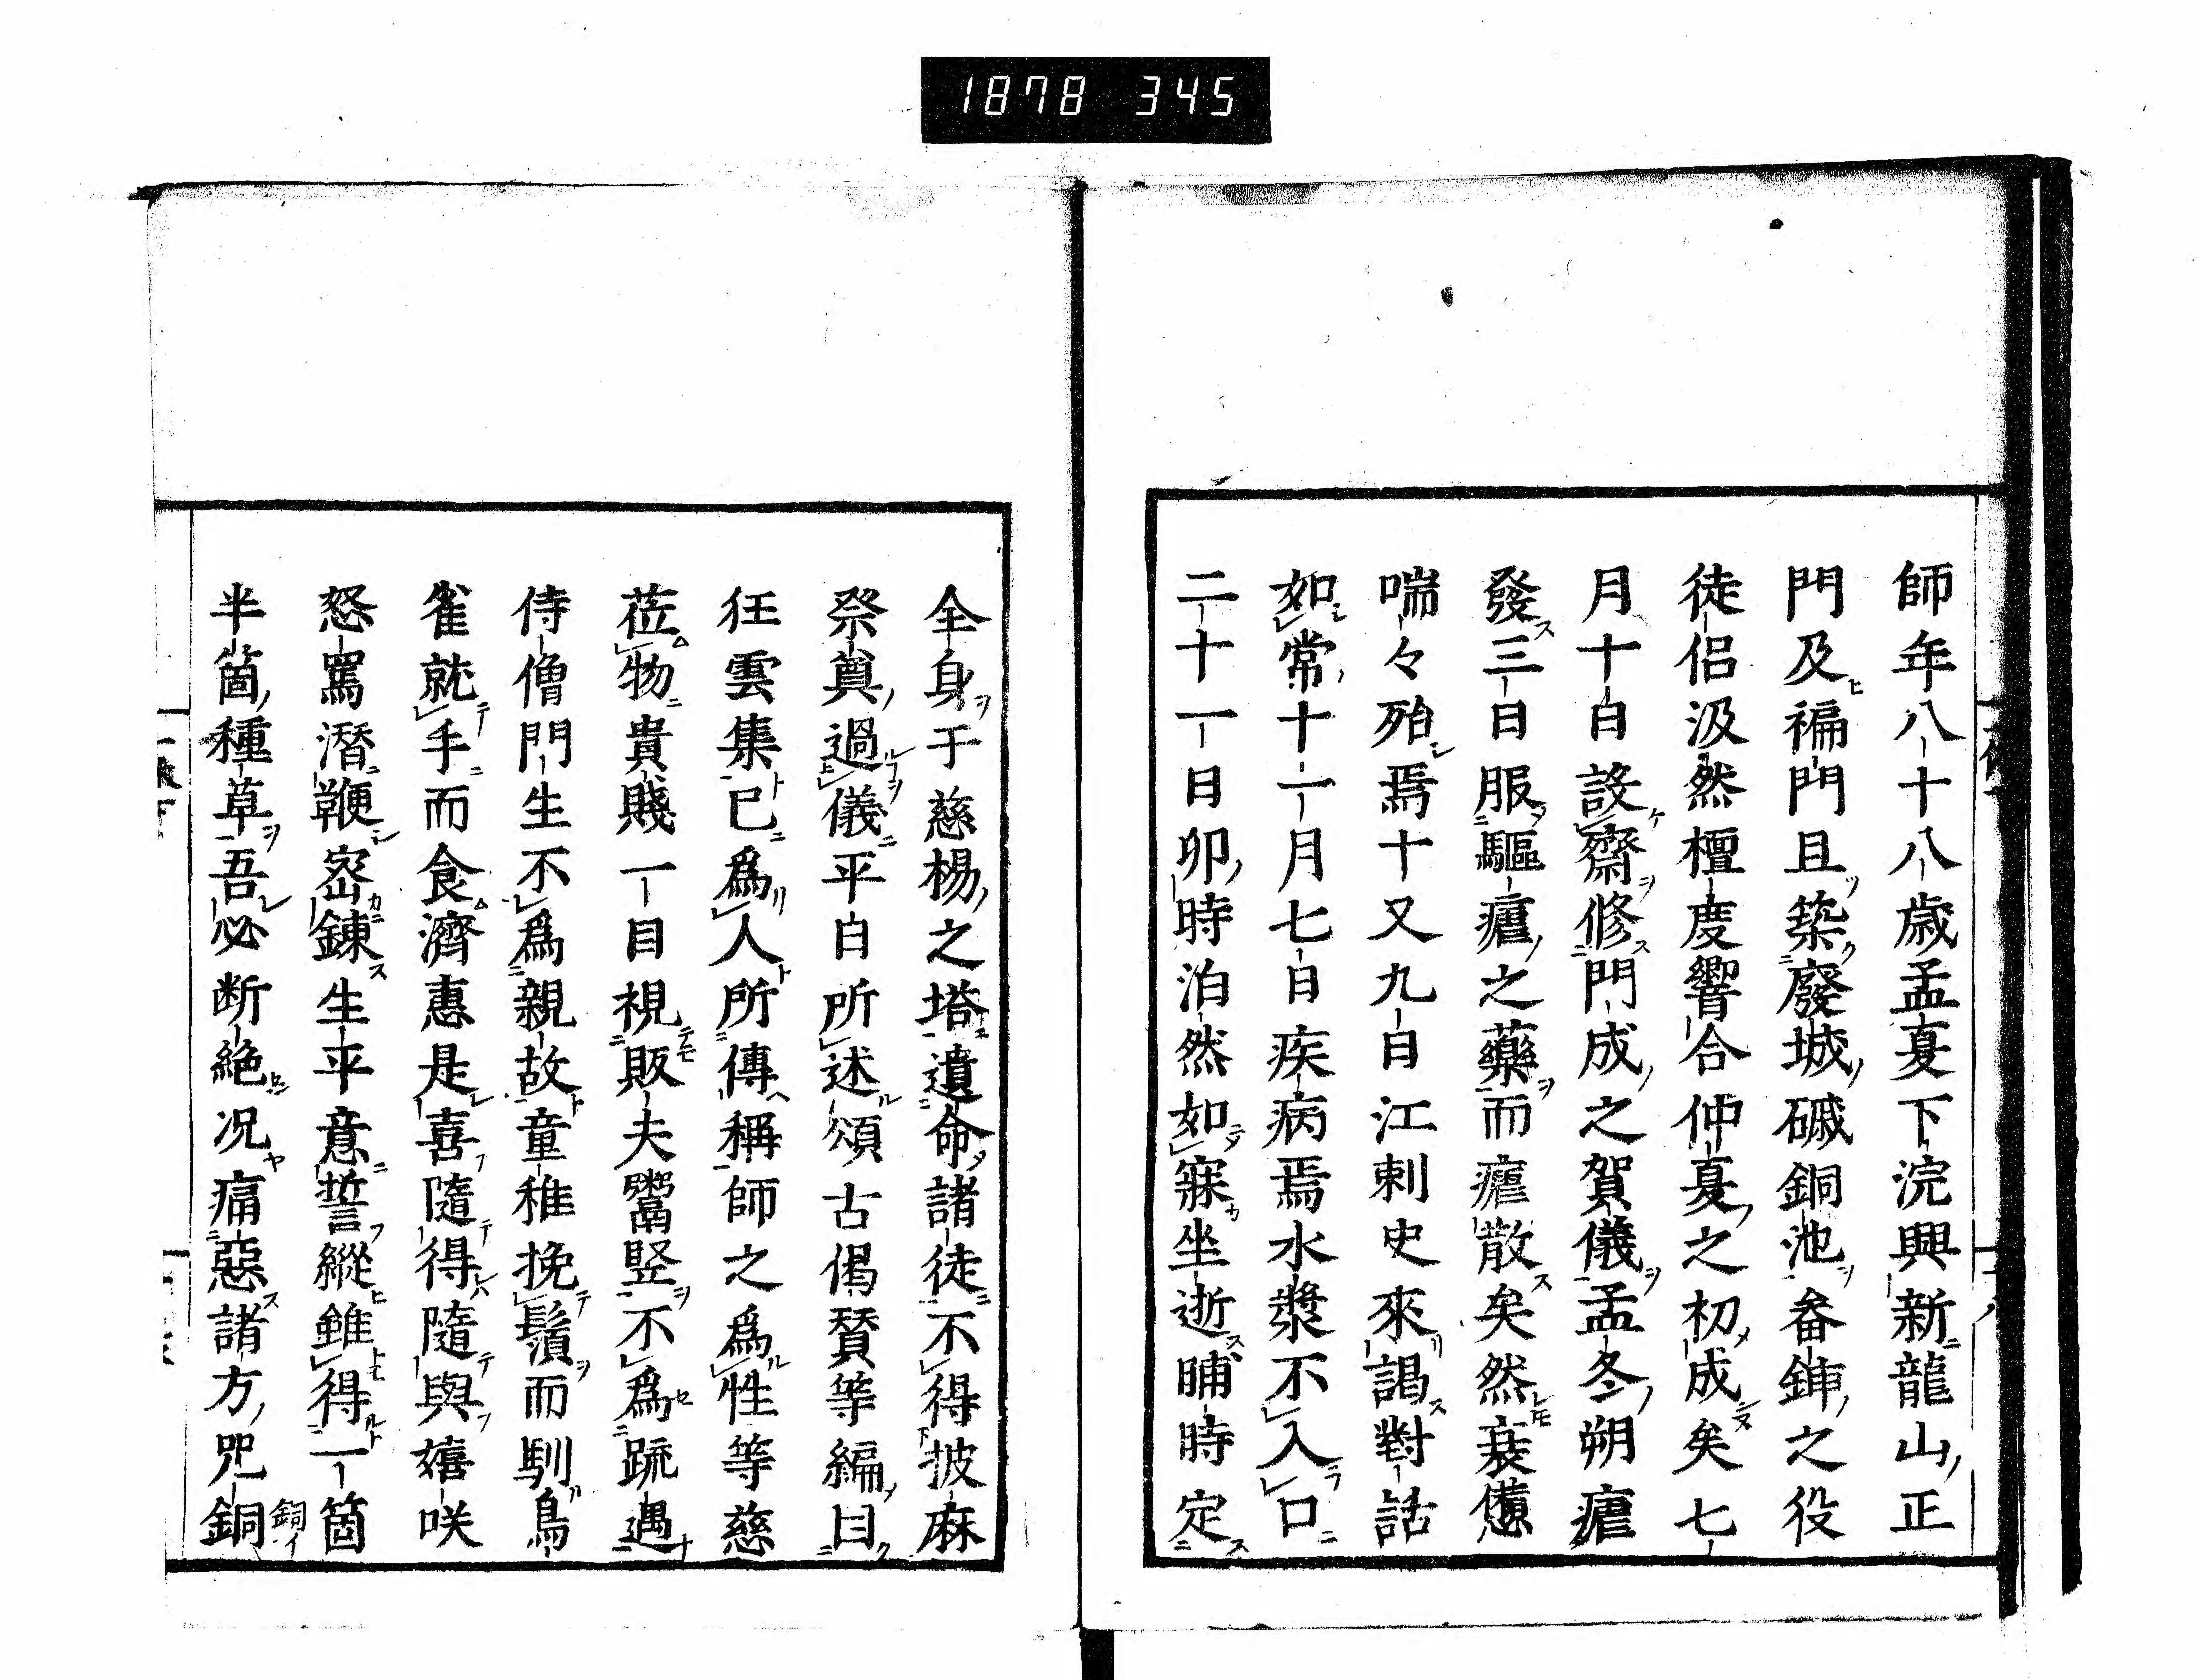 1878 345
師年八十八歳孟夏下浣興新龍山正
門及褊門且築廢城磩銅池畚鍤之役
徒侶汲然檀度響合仲夏之初成矣七
月十日設齋修門成之賀儀孟冬朔瘧
發三日服驅瘧之藥而瘧散矣然衰憊
喘々殆焉十又九日江刺史來謁對話
如常十一月七日疾病焉水漿不入口
二十一日卯時泊然如寐坐逝晡時定
全身于慈楊之塔遺命諸徒不得披麻
祭奠過儀平日所述頌古偈賛等編曰
狂雲集已爲人所傳稱師之爲性等慈
莅物貴賤一目視販夫鬻竪不爲疏遇
侍僧門生不爲親故童稚挽鬚而馴鳥
雀就手而食濟惠是喜隨得隨與嬉咲
怒罵潛鞭密錬生平意誓縱錐得一箇
半箇種草吾必断絶况痛惡諸方咒銅
銅イ